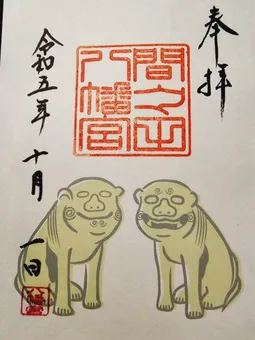 奉拝
間々田
八幡宮
令和五年 十月 一日